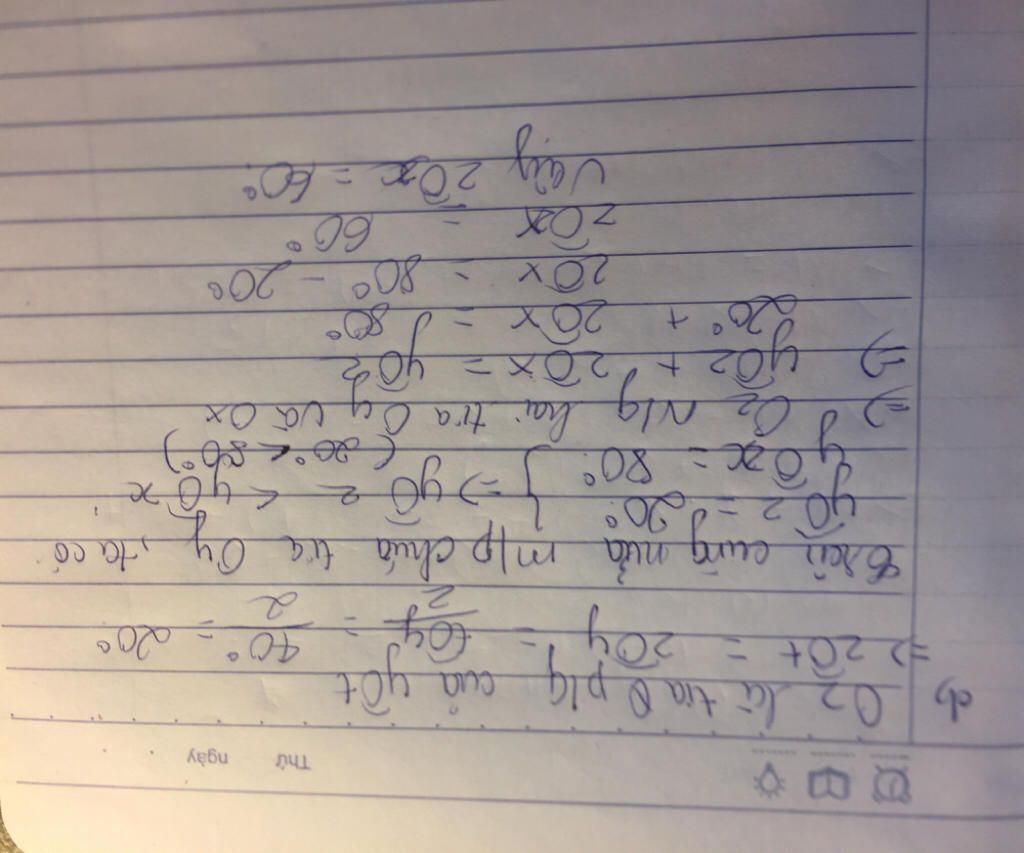 Thứ ngày
d) Oz là tia p/g của yÔt
=> zÔt = zÔy = tÔy/2 = 40°/2 = 20°
Trên cùng nửa m/p chứa tia Oy, ta có
yÔz = 20°
yÔx = 80° } => yÔz < yÔx
(20° < 80°)
=> Oz N/g hai tia Oy và Ox
=> yÔz + zÔx = yÔz
20° + zÔx = 80°
zÔx = 80° - 20°
zÔx = 60°
Vậy zÔx = 60°.